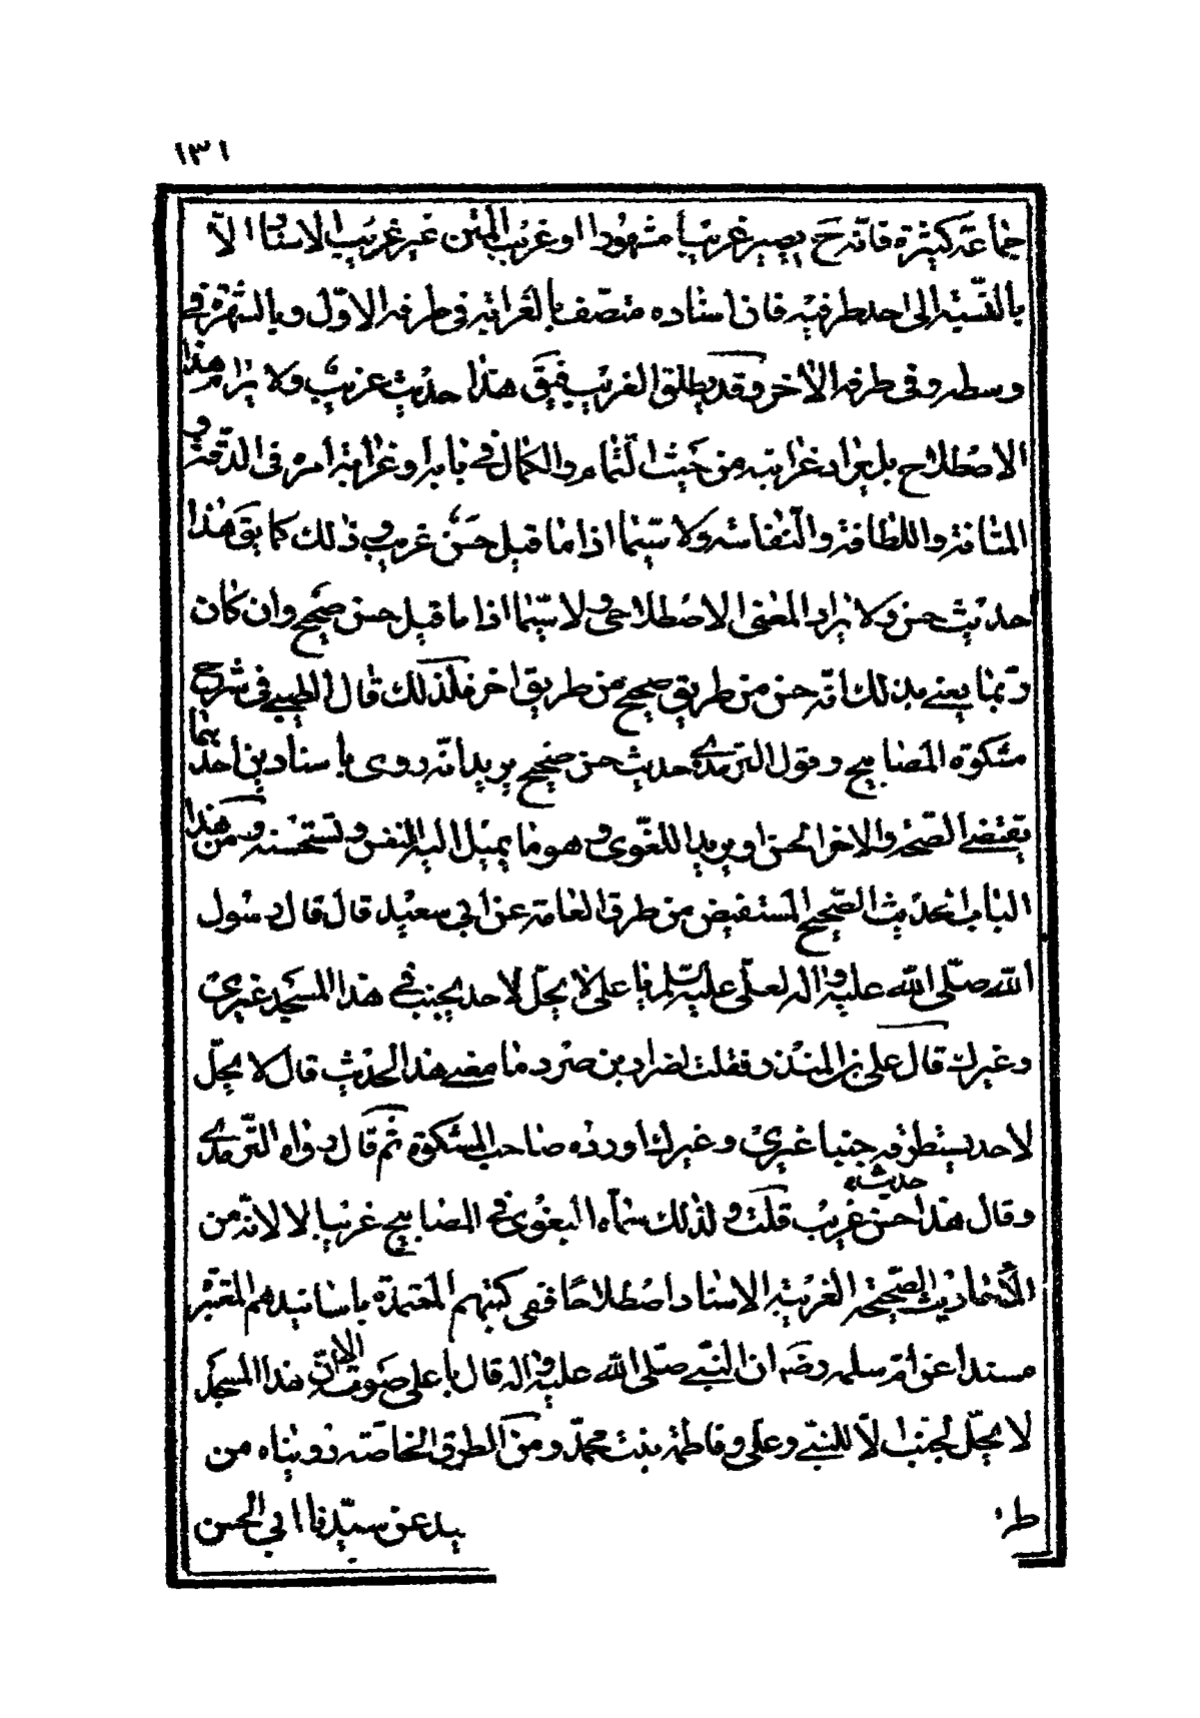 ١٣١
جماعة كثيرة فانه ح يصير غريبا مشهورا او غريب المتن غير غريب الاسناد الاّ
بالنسبة الى احد طرفيه فان اسناده متصف بالغرابة فى طرفه الاوّل و بالشهرة فى
وسطه و فى طرفه الاخر و قد يطلق الغريب فيق هذا حديث غريب و لا يراد هذا
الاصطلاح بل يراد غرابته من حيث التمام و الكمال فى بابه او غرابة امره فى الدّقة و
المتانة و اللطافة و النفاسة و لا سيّما اذا ما قيل حسن غريب و ذلك كما يق هذا
حديث حسن و لا يراد المعنى الاصطلاحى و لا سيّما اذا ما قيل حسن صحيح و ان كان
ربّما يعنى بذلك انّه حسن من طريق صحيح من طريق اخر فلذلك قال الطيبى فى شرح
مشكوة المصابيح و قول الترمذى حديث حسن صحيح يريد انّه روى باسنادين احدهما
يقتضى الصّحة و الاخر الحسن او يريد اللغوى و هو ما يميل اليه النفس و تستحسنه و من هذا
الباب الحديث الصّحيح المستفيض من طرق العامة عن ابى سعيد قال قال رسول
اللّه صلّى اللّه عليه و اله لعلى عليه السّلم يا على لا يحلّ لاحد يجنب فى هذا المسجد غيرى
و غيرك قال على بن المنذر فقلت لضرار بن صرد ما معنى هذا الحديث قال لا يحلّ
لاحد يستطرقه جنبا غيرى و غيرك اورده صاحب المشكوة ثم قال رواه التّرمذى
و قال هذا حديث حسن غريب قلت و لذلك سمّاه البغوى فى المصابيح غريبا لا لانّه من
الاحاديث الصّحيحة الغريبة الاسناد اصطلاحًا ففى كتبهم المعتمدة باسانيدهم المعتبرة
مسندا عن امّ سلمه رضه ان النّبى صلّى اللّه عليه و اله قال باعلى صوته الا انّ هذا المسجد
لا يحلّ لجنب الاّ للنبىّ و على و فاطمة بنت محمّد و من الطرق الخاصّة روينا‌ه من
ط
يد عن سيّدنا ابى الحسن